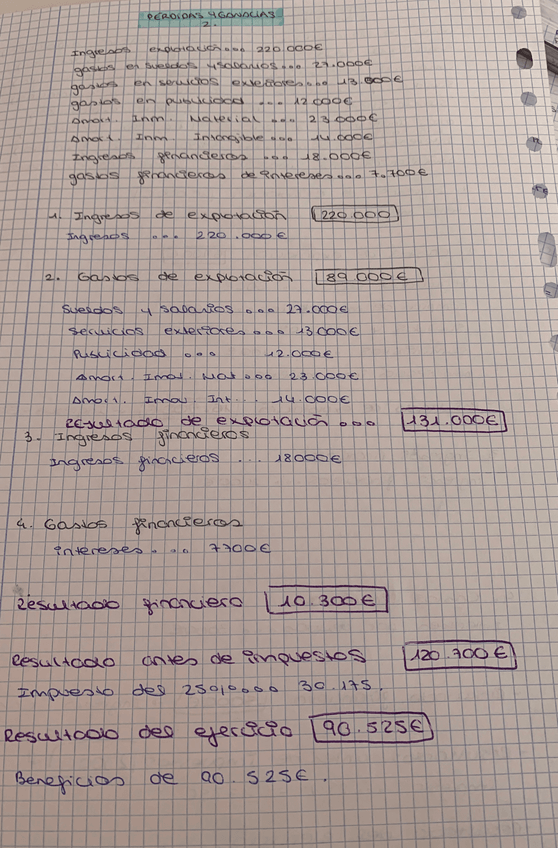 PERDIDAS Y GANACIAS
2.
Ingresos explotación... 220.000€
gastos en sueldos y salarios... 27.000€
gastos en servicios exteriores... 13.000€
gastos en publicidad ... 12000€
Amort. Inm. Material ... 23000€
Amort. Inm Intangible ... 14.000€
Ingresos financieros ... 18.000€
gastos financieros de intereses... 7.700€
1. Ingresos de explotación 220.000
Ingresos ... 220.000€
2. Gastos de explotación 89000€
Sueldos y salarios ... 27.000€
Servicios exteriores ... 13000€
Publicidad ... 12.000€
Amort. Imov. Mat ... 23.000€
Amort. Imov. Int... 14.000€
Resultado de explotación ... 131.000€
3. Ingresos financieros
Ingresos financieros ... 18000€
4. Gastos financieros
intereses... 7700€
Resultado financiero 10.300€
Resultado antes de impuestos 120.700€
Impuesto del 25%... 30.175.
Resultado del ejercicio 90.525€
Beneficios de 90.525€.